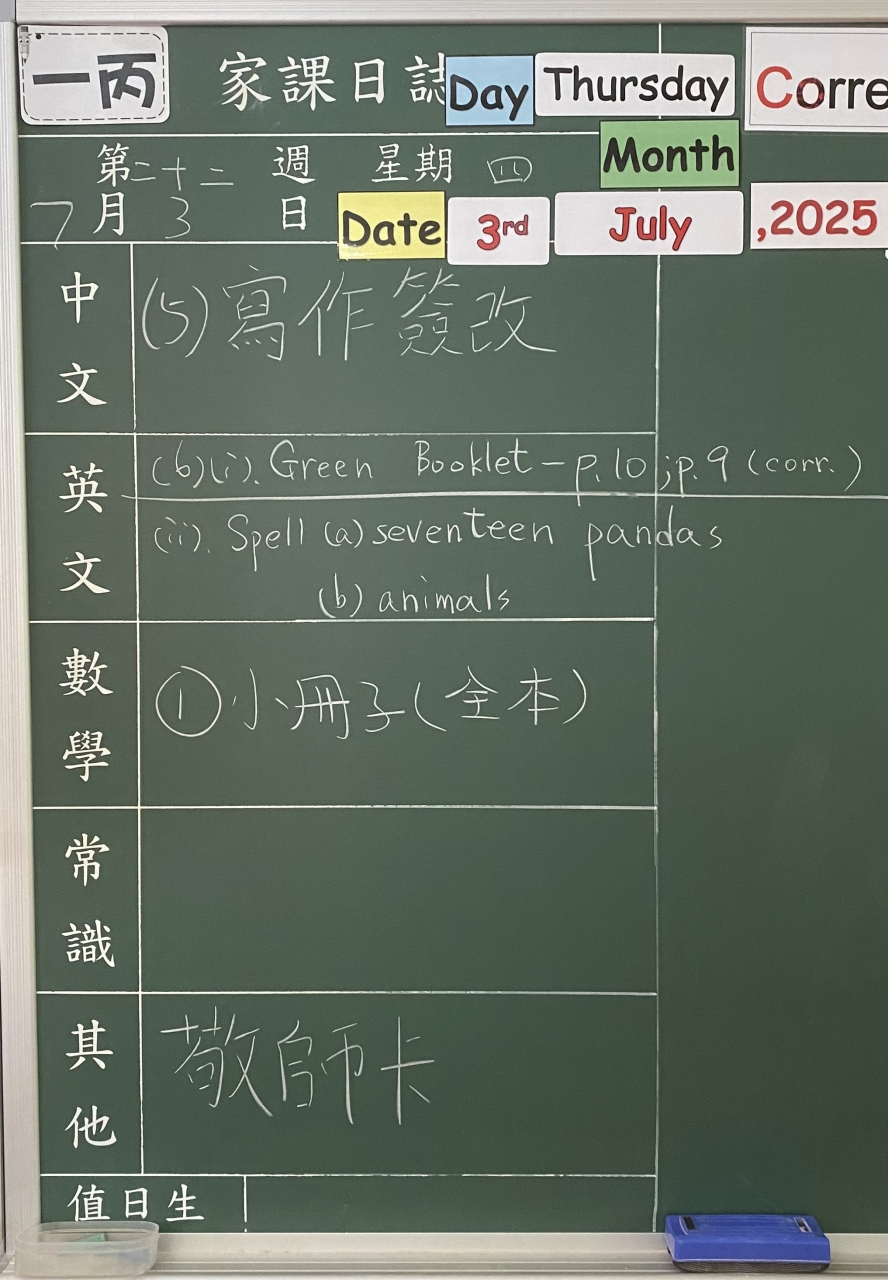 一丙 家課日誌 Day Thursday Corre
第二十二週 星期四 Month
7月3日 Date 3rd July ,2025
中文 (5)寫作簽改
英文 (6)(i). Green Booklet – p.10 ; p.9 (corr.)
(ii). Spell (a) seventeen pandas
(b) animals
數學 ①小冊子(全本)
常識
其他 敬師卡
值日生